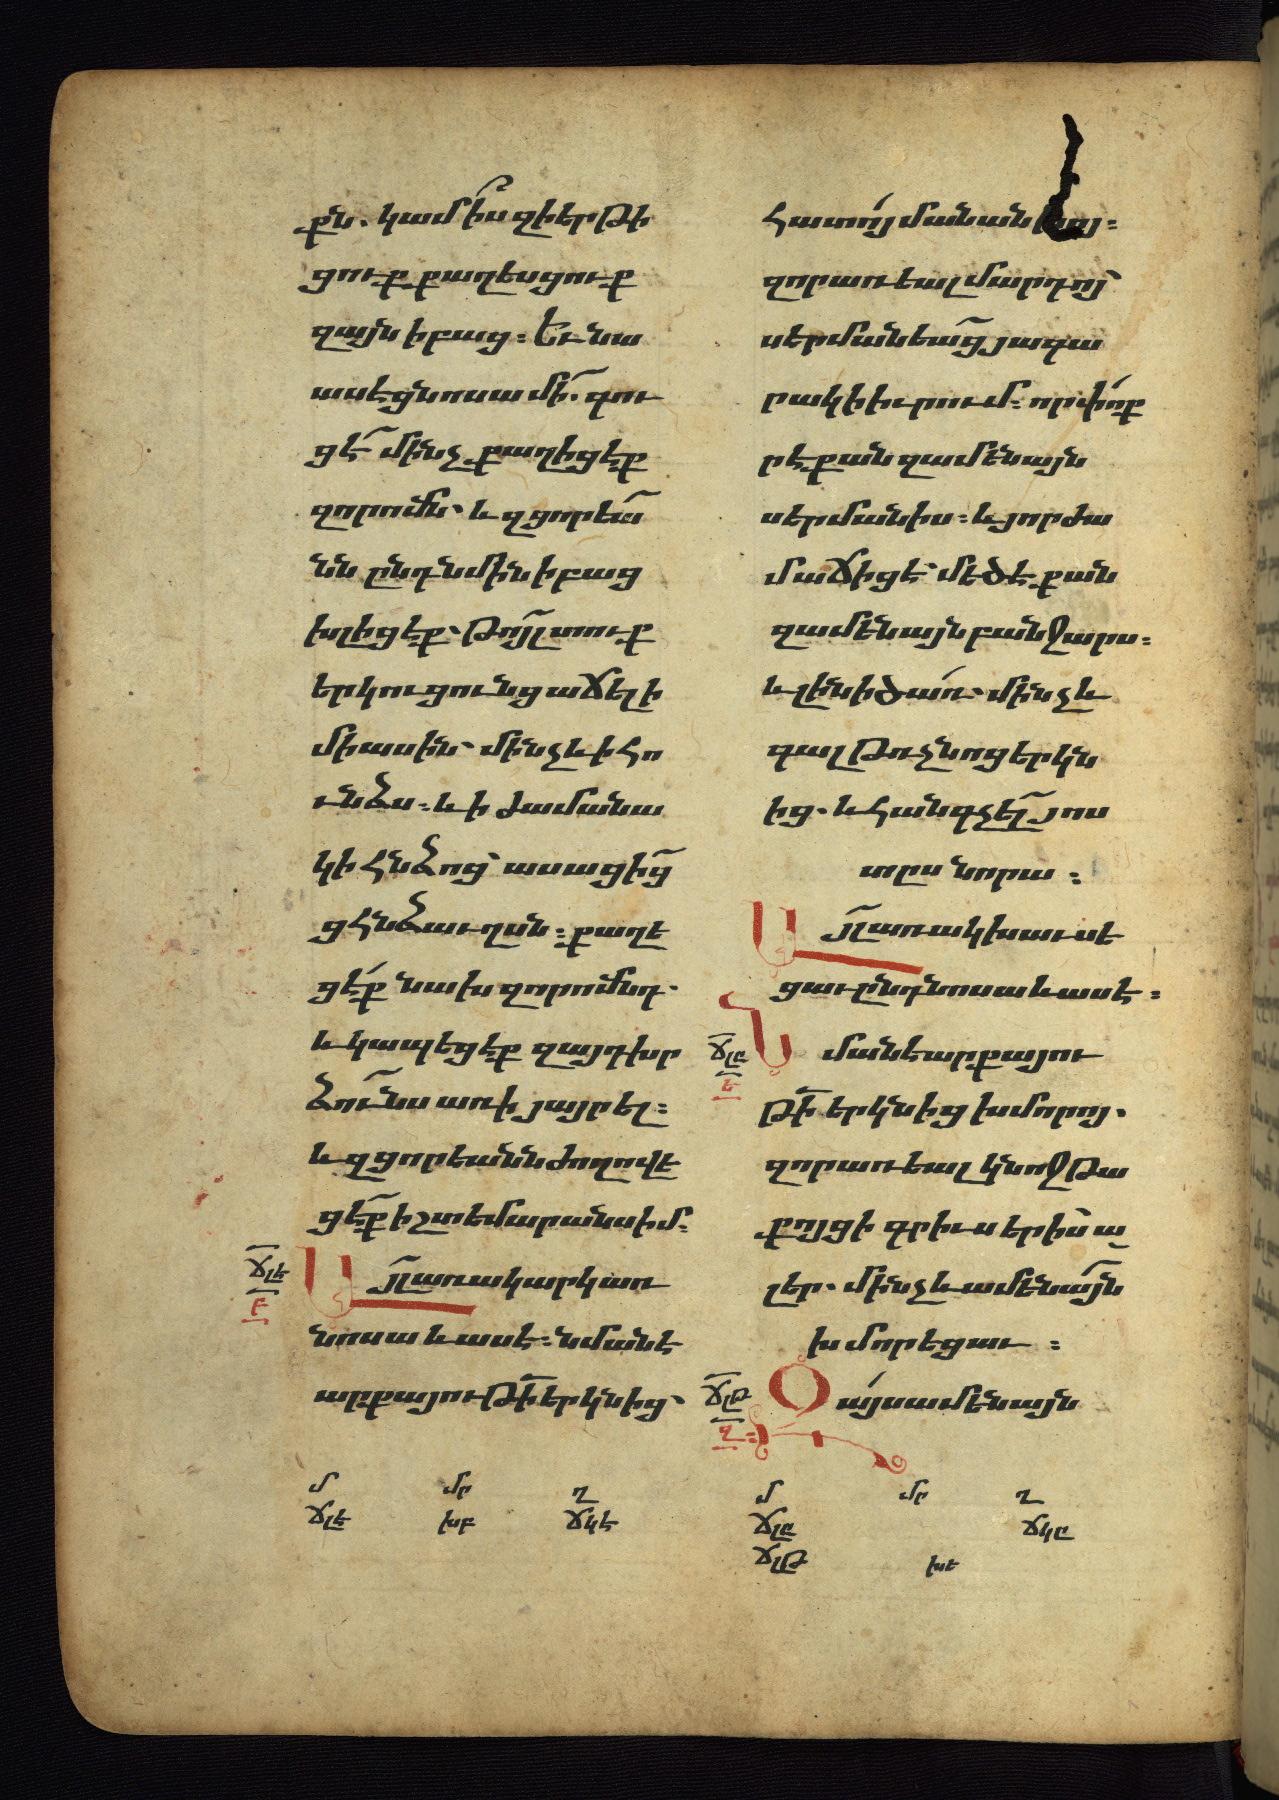 քն. կամիս զի երթի
ցուք քաղեսցուք
զայն ի բաց։ Եւ նա
ասէ ցնոսա մի՛. գու
ցէ՛ մինչ քաղիցէք
զորոմն՝ և զցորեա
նն ընդ նմին ի բաց
խլիցէք. Թոյլ տուք
երկուցունց աճել ի
միասին՝ մինչև ի հո
ւնձս։ և ի ժամանա
կի հնձոց՝ ասացից
ցհնձաւղսն։ քաղե
ցէ՛ք նախ զորոմնդ.
և կապեցէք զայդ խր
ձունս առ ի յայրել։
և զցորեանն ժողովե
ցէ՛ք ի շտեմարանս իմ։
ճլէ
բ
Այլ առակ արկ առ
նոսա և ասէ։ նման է
արքայութի երկնից.
մ մր ղ
ճլէ խբ ճկէ
հատո՛յ մանանխոյ։
զոր առեալ մարդոյ՝
սերմանեաց յագա
րակի իւրում։ որ փո՛ք
ր է քան զամենայն
սերմանիս։ և յորժա
մ աճիցէ՝ մեծ է քան
զամենայն բանջարս։
և լինի ծա՛ռ. մինչև
գալ թուչնոց երկն
ից. և հանգչել յոս
տըս նորա։
Այլ առակ խաւսե
ցաւ ընդ նոսա և ասէ։
ճլը
ե
Նման է արքայու
թի երկնից խմորոյ.
զոր առեալ կնոջ թա
քոյց ի գրիւս երիս ա
լեր. մինչև ամենայն
խմորեցաւ։
ճլթ
զ
Զա՛յս ամենայն
մ մր ղ
ճլը ճկը
ճլթ խե